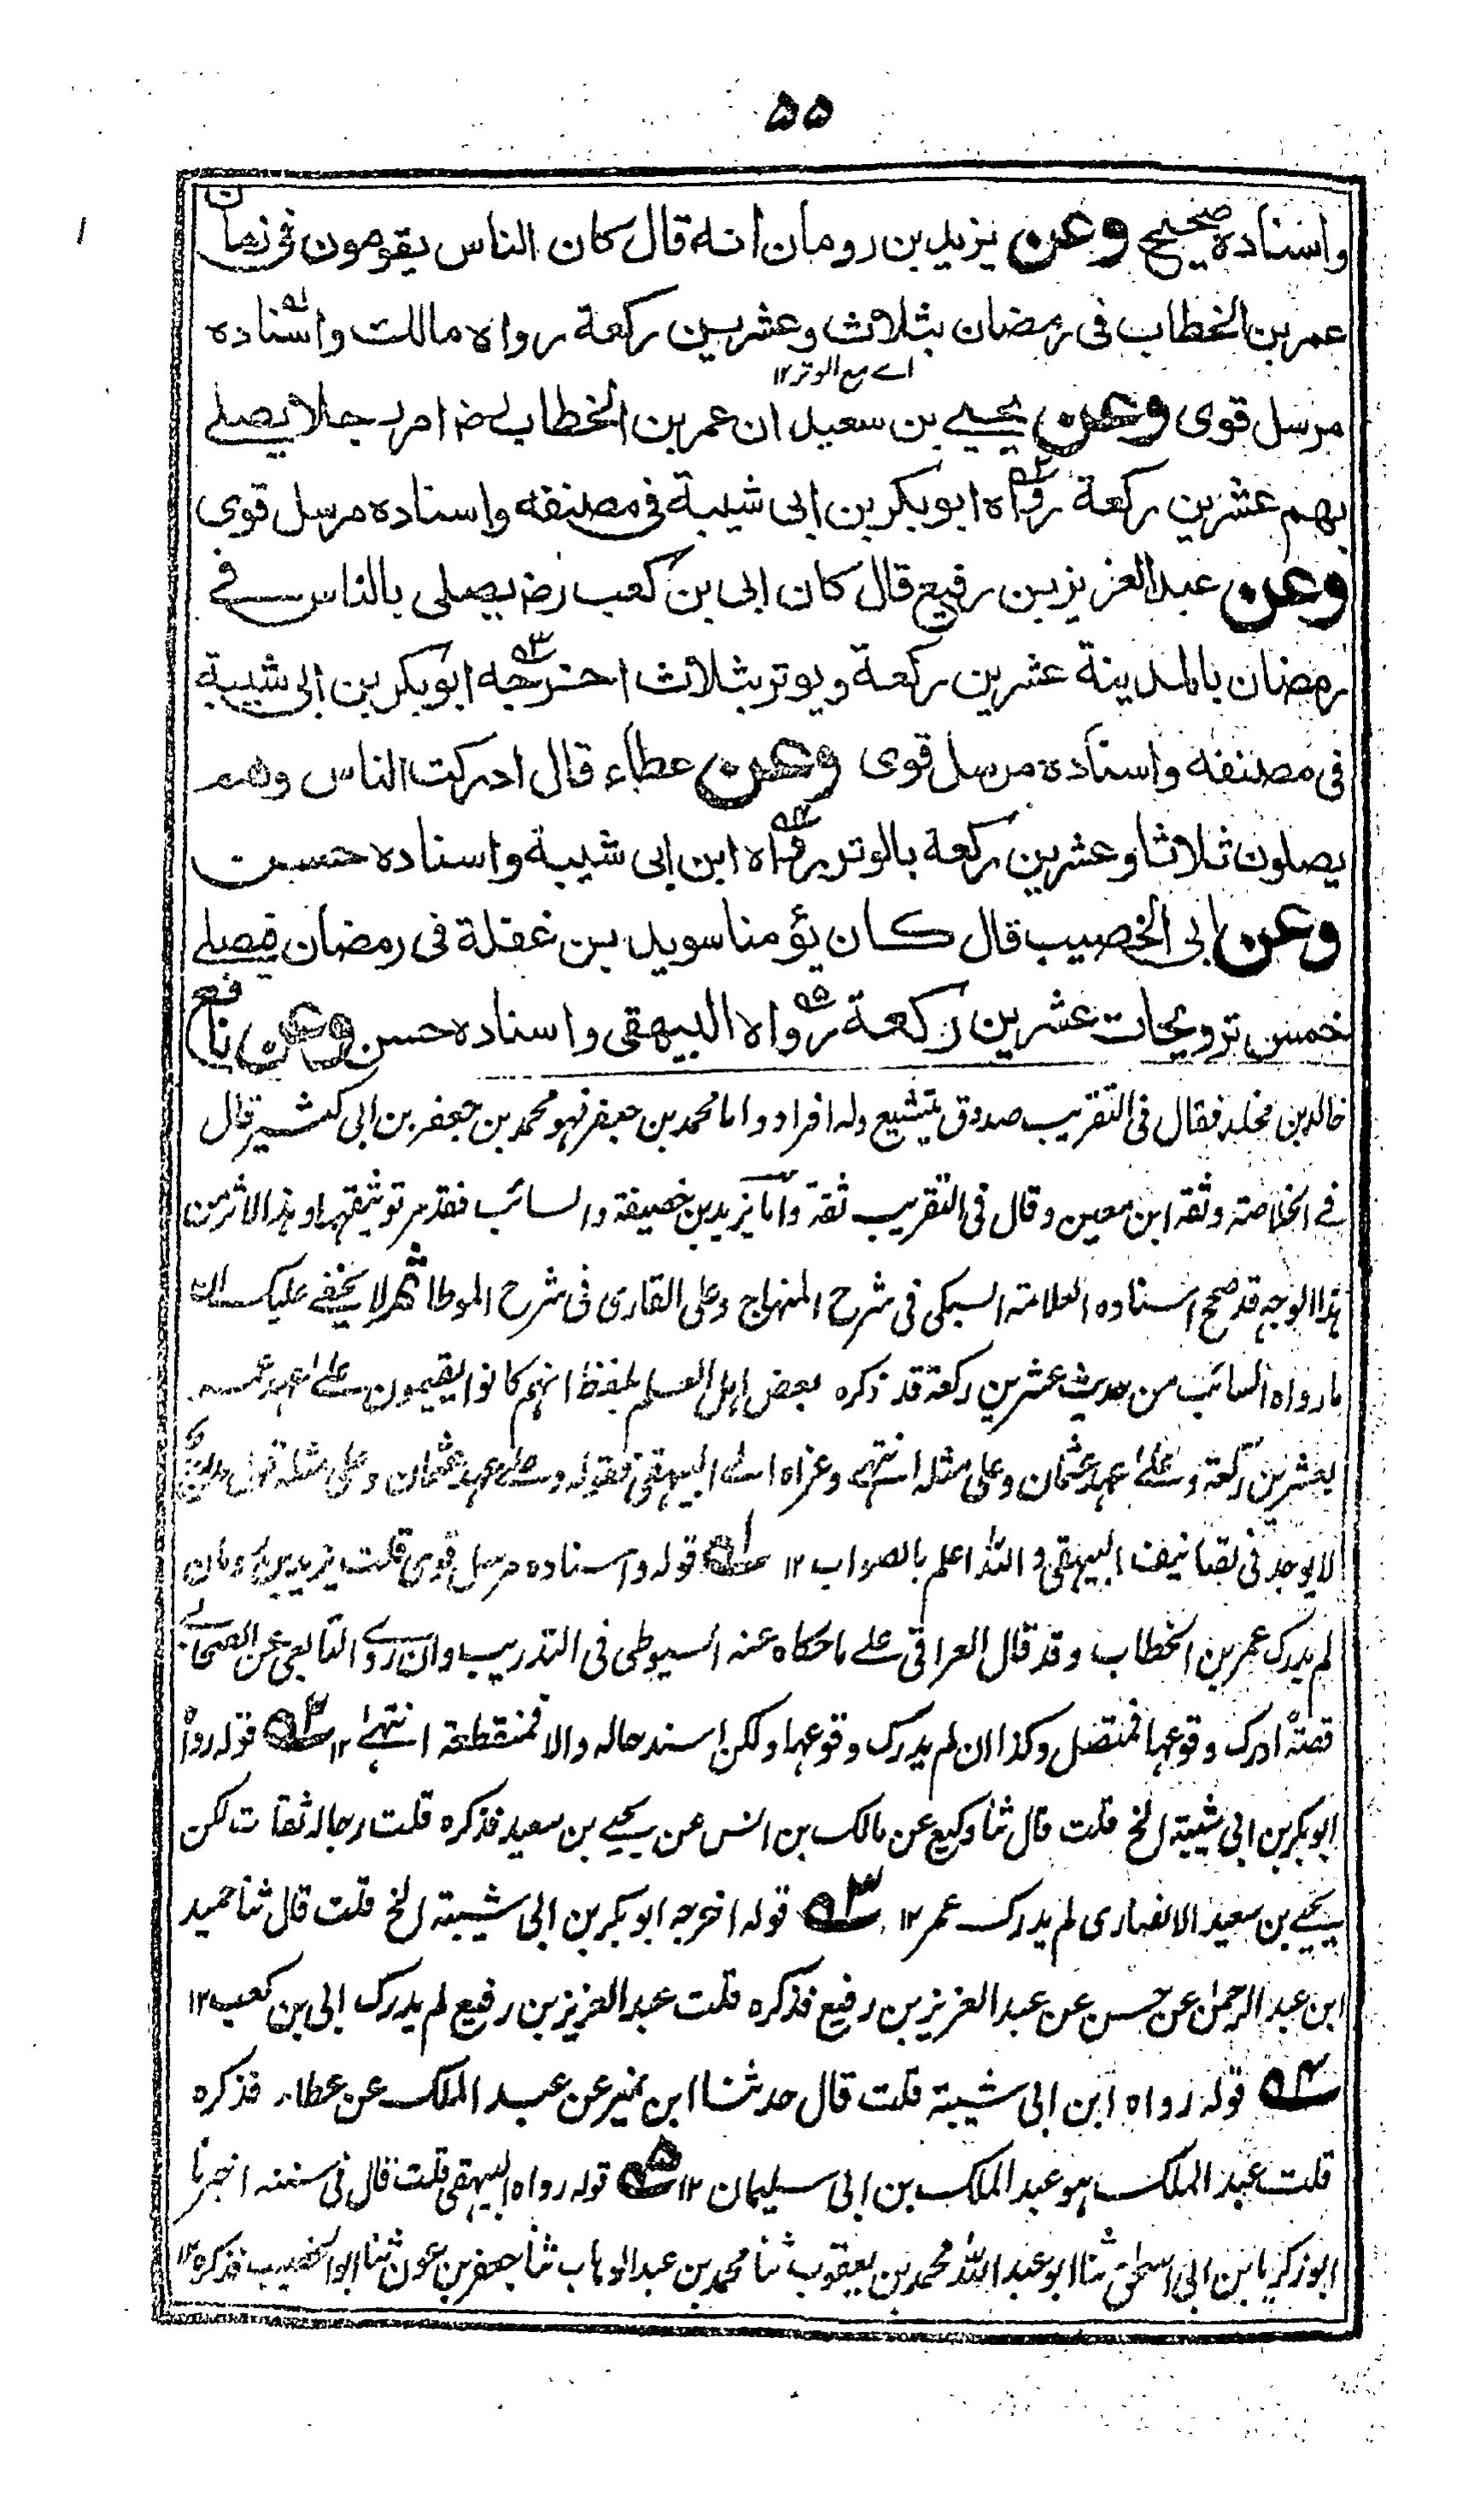 ۵۵
واسناده صحيح وعن يزيد بن رومان انه قال كان الناس يقومون فى زمان
عمر بن الخطاب فى رمضان بثلاث وعشرين ركعة رواه مالك واسناده ۱ه
اے مع الوتر ۱۲
مرسل قوى وعن يحيى بن سعيد ان عمر بن الخطاب رض امر رجلا يصلى
بهم عشرين ركعة رواه ۲ه ابوبكر بن ابى شيبة فى مصنفه واسناده مرسل قوى
وعن عبد العزيز بن رفيع قال كان ابى بن كعب رض يصلى بالناس فى
رمضان بالمدينة عشرين ركعة ويوتر بثلاث اخرجه ۳ه ابوبكر بن ابى شيبة
فى مصنفه واسناده مرسل قوى وعن عطاء قال ادركت الناس وهم
يصلون ثلاثا وعشرين ركعة بالوتر رواه ۴ه ابن ابى شيبة واسناده حسن
وعن ابى الخصيب قال كان يؤمنا سويد بن غفلة فى رمضان فيصلى
خمس ترويحات عشرين ركعة رواه ۵ه البيهقى واسناده حسن وعن نافع
خالد بن مخلد فقال فى التقريب صدوق يتشيع وله افراد واما محمد بن جعفر فهو محمد بن جعفر بن ابى كثير قال
فى الخلاصة وثقه ابن معين وقال فى التقريب ثقة واما يزيد بن خصيفة والسائب فقد مر توثيقهما وهذا الاثر من
هذا الوجه قد صحح اسناده العلامة السبكى فى شرح المنهاج وعلى القارى فى شرح الموطا ثم لا يخفى عليك ان
ما رواه السائب من حديث عشرين ركعة قد ذكره بعض اهل العلم بلفظ انهم كانوا يقيمون على عهد عمر
بعشرين ركعة وعلى عهد عثمان وعلى مثله انتهى وعزاه الى البيهقى فقوله وعلى عهد عثمان وعلى مثله قول مدرج
لا يوجد فى تصانيف البيهقى والله اعلم بالصواب ۱۲ ۱ه قوله واسناده مرسل قوى قلت يزيد بن رومان
لم يدرك عمر بن الخطاب وقد قال العراقى على ما حكاه عنه السيوطى فى التدريب وان روى التابعى عن الصحابى
قصة ادرك وقوعها فمتصل وكذا ان لم يدرك وقوعها ولكن اسند حاله والا فمنقطعة انتهى ۱۲ ۲ه قوله رواه
ابوبكر بن ابى شيبة الخ قلت قال ثنا وكيع عن مالك بن انس عن يحيى بن سعيد فذكره قلت رجاله ثقات لكن
يحيى بن سعيد الانصارى لم يدرك عمر ۱۲ ۳ه قوله اخرجه ابوبكر بن ابى شيبة الخ قلت قال ثنا حميد
ابن عبد الرحمن عن حسن عن عبد العزيز بن رفيع فذكره قلت عبد العزيز بن رفيع لم يدرك ابى بن كعب ۱۲
۴ه قوله رواه ابن ابى شيبة قلت قال حدثنا ابن نمير عن عبد الملك عن عطاء فذكره
قلت عبد الملك هو عبد الملك بن ابى سليمان ۱۲ ۵ه قوله رواه البيهقى قلت قال فى سننه اخبرنا
ابو زكريا بن ابى اسحق ثنا ابو عبد الله محمد بن يعقوب ثنا محمد بن عبد الوهاب ثنا جعفر بن عون ثنا ابو الخصيب فذكره ۱۲